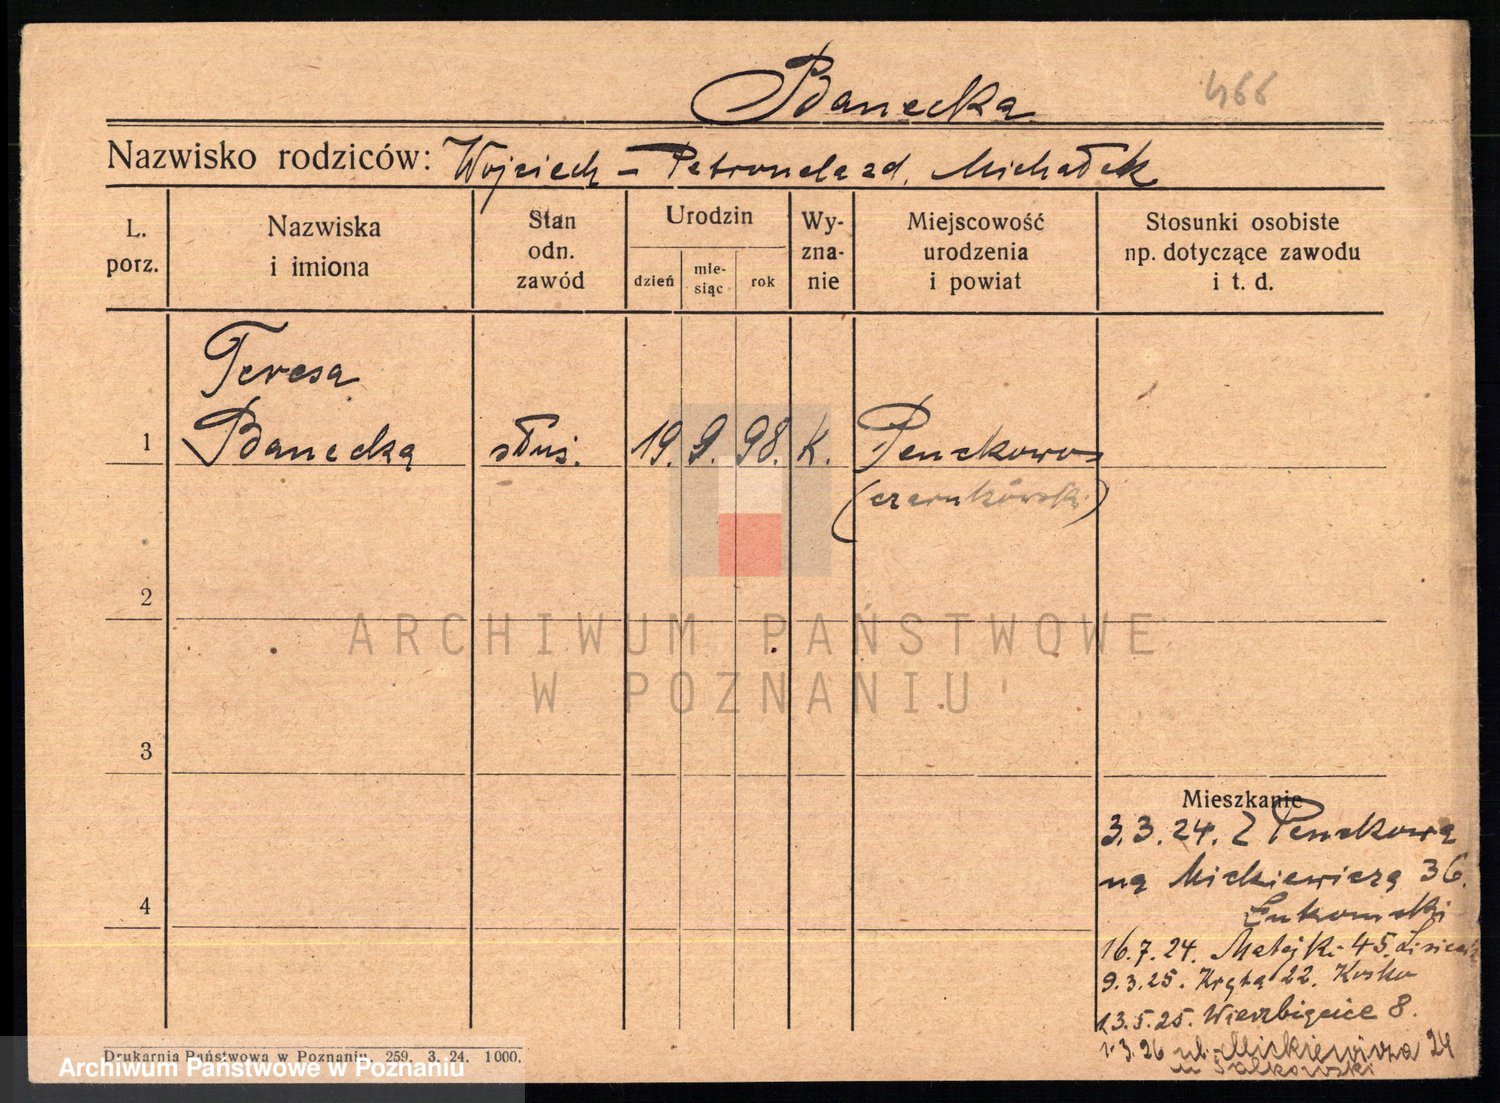 Banecka
466
Nazwisko rodziców: Wojciech - Petronela zd. Michałek
L. porz.
Nazwiska i imiona
Stan odn. zawód
Urodzin
dzień
mie-siąc
rok
Wy-zna-nie
Miejscowość urodzenia i powiat
Stosunki osobiste np. dotyczące zawodu i t. d.
Teresa
1 Banecka służ. 19. 9. 98. K. Penckowo
(czarnkowski)
2
ARCHIWUM PAŃSTWOWE
W POZNANIU
3
Mieszkanie
3.3.24. Z Penckowa
na Mickiewicza 36.
4
Łukomski
16.7.24. Matejki 45.
9.3.25. Kręta 22. Kosko
13.5.25. Wierzbięcice 8.
1.3.26 ul. Mickiewicza 24
Drukarnia Państwowa w Poznaniu. 259. 3. 24. 1000.
Archiwum Państwowe w Poznaniu